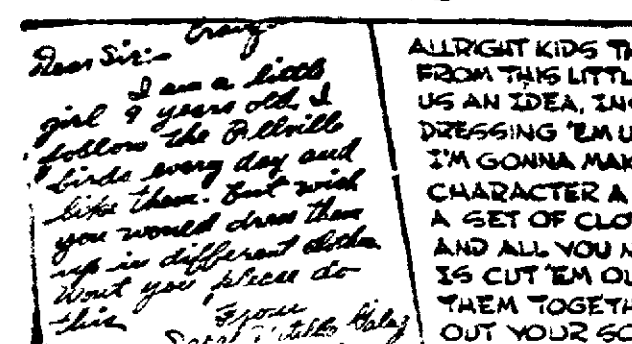 Dear Sir:-
I am a little
girl 9 years old. I
follow the Pillville
birds every day and
like them. But wish
you would dress them
up in different clothes
Wont you please do
this
From
ALLRIGHT KIDS TH
FROM THIS LITTL
US AN IDEA, INS
DRESSING 'EM U
I'M GONNA MAK
CHARACTER A
A SET OF CLO
AND ALL YOU N
IS CUT 'EM OU
THEM TOGETH
OUT YOUR SC